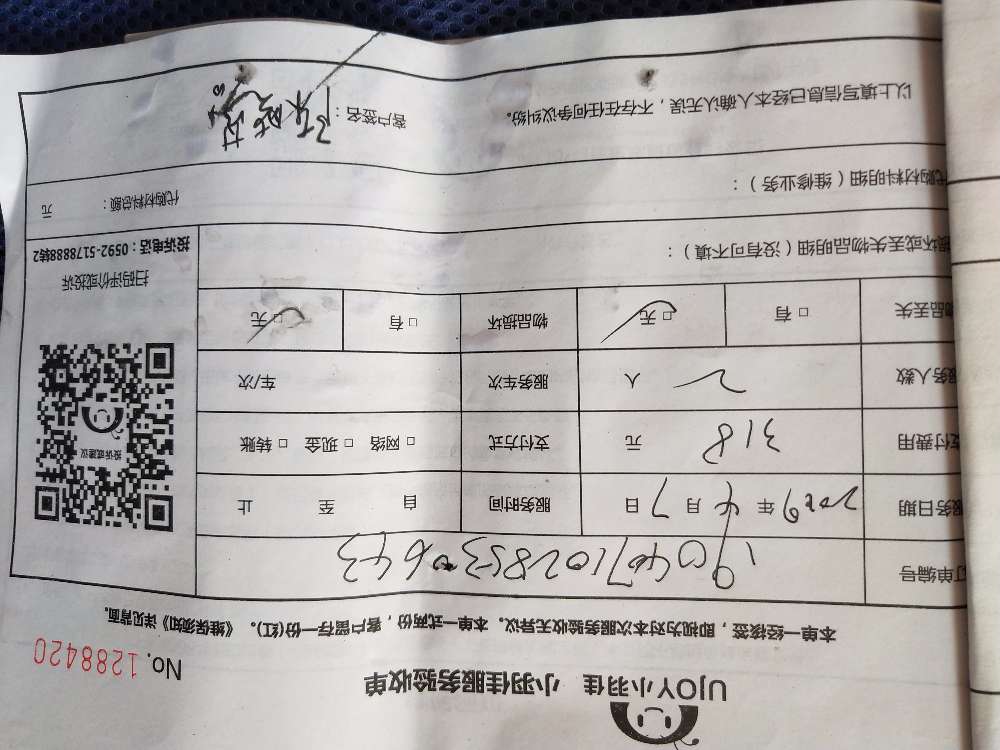 UJOY小羽佳 小羽佳服务验收单
No. 1288420
本单一经接签，即视为对本次服务验收无异议。本单一式两份，客户留存一份(红)。《维保须知》详见背面。
订单编号
服务日期 2029年4月7日 服务时间 自 至 止
支付费用 318 元 支付方式 □ 网络 □ 现金 □ 转账
服务人数 2 人 服务车次 车/次
物品丢失 □ 有 □ 无 物品损坏 □ 有 □ 无
投诉或建议
扫码评价或投诉
投诉电话：0592-5178888转2
损坏或丢失物品明细（没有可不填）：
代购材料明细（维修业务）： 代购材料总额： 元
以上填写信息已经本人确认无误，不存在任何争议纠纷。 客户签名：